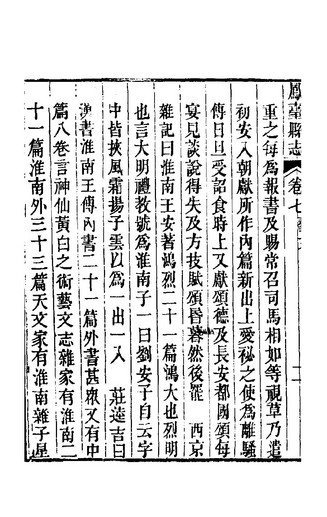 鳳臺縣志 卷七 藝文
重之每爲報書及賜常召司馬相如等視草乃遣
初安入朝獻所作內篇新出上愛秘之使爲離騷
傳日旦受詔食時上又獻頌德及長安都國頌每
宴見談說得失及方技賦頌昏暮然後罷 西京
雜記曰淮南王安著鴻烈二十一篇鴻大也烈明
也言大明禮敎號爲淮南子一曰劉安子自云字
中皆挾風霜揚子雲以爲一出一入 莊逵吉曰
漢書淮南王傳內書二十一篇外書甚衆又有中
篇八卷言神仙黃白之術藝文志雜家有淮南二
十一篇淮南外三十三篇天文家有淮南雜子星